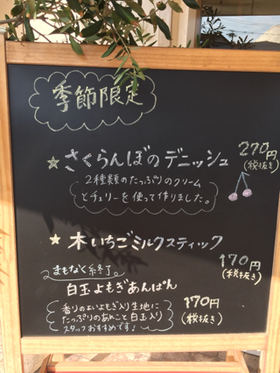 季節限定
★ さくらんぼのデニッシュ 270円
(税抜き)
2種類のたっぷりのクリーム
とチェリーを使って作りました。
★ 木いちごミルクスティック
170円
(税抜き)
まもなく終了
白玉よもぎあんぱん
香りのよいよもぎ入り生地に
たっぷりのあんこと白玉入り
スタッフおすすめです♪
170円
(税抜き)